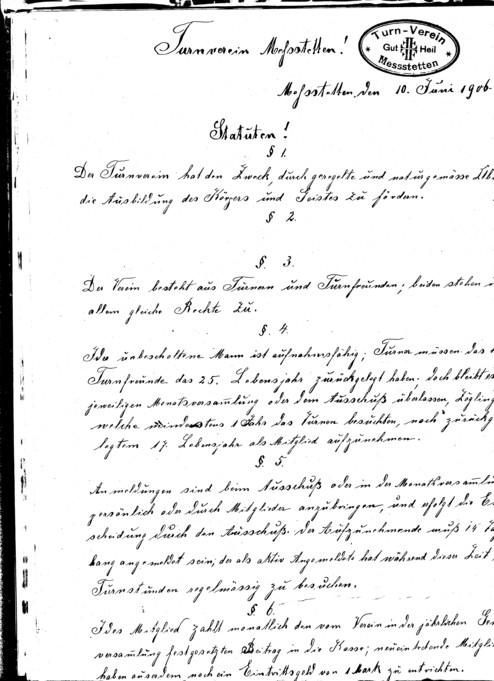 Turnverein Messstetten!
Turn-Verein
Gut Heil
Messstetten
Messstetten, den 10. Juni 1906
Statuten!
§ 1.
Der Turnverein hat den Zweck, durch geregelte und naturgemässe
die Ausbildung des Körpers und Geistes zu fördern.
§ 2.
§. 3.
Der Verein besteht aus Turnern und Turnfreunden; beiden stehen in
allem gleiche Rechte zu.
§. 4.
Jeder unbescholtene Mann ist aufnahmsfähig; Turner müssen das
Turnfreunde das 25. Lebensjahr zurückgelegt haben; doch bleibt es
jeweiligen Monatsversammlung oder dem Ausschuß überlassen, Zögling
welche mindestens 1 Jahr das Turnen besuchten, nach zurückge
legtem 17. Lebensjahr als Mitglied aufzunehmen.
§. 5.
Anmeldungen sind beim Ausschuß oder in der Monatsversammlu
persönlich oder durch Mitglieder anzubringen, und erfolgt die E
scheidung durch den Ausschuß. Der Aufzunehmende muß 14 Ta
lang angemeldet sein; der als aktiv Angemeldete hat während dieser Zeit,
Turnstunden regelmässig zu besuchen.
§ 6.
Jedes Mitglied zahlt monatlich den vom Verein in der jährlichen Gen
versammlung festgesetzten Beitrag in die Kasse; neueintretende Mitglie
haben ausserdem noch ein Eintrittsgeld von 1 Mark zu entrichten.